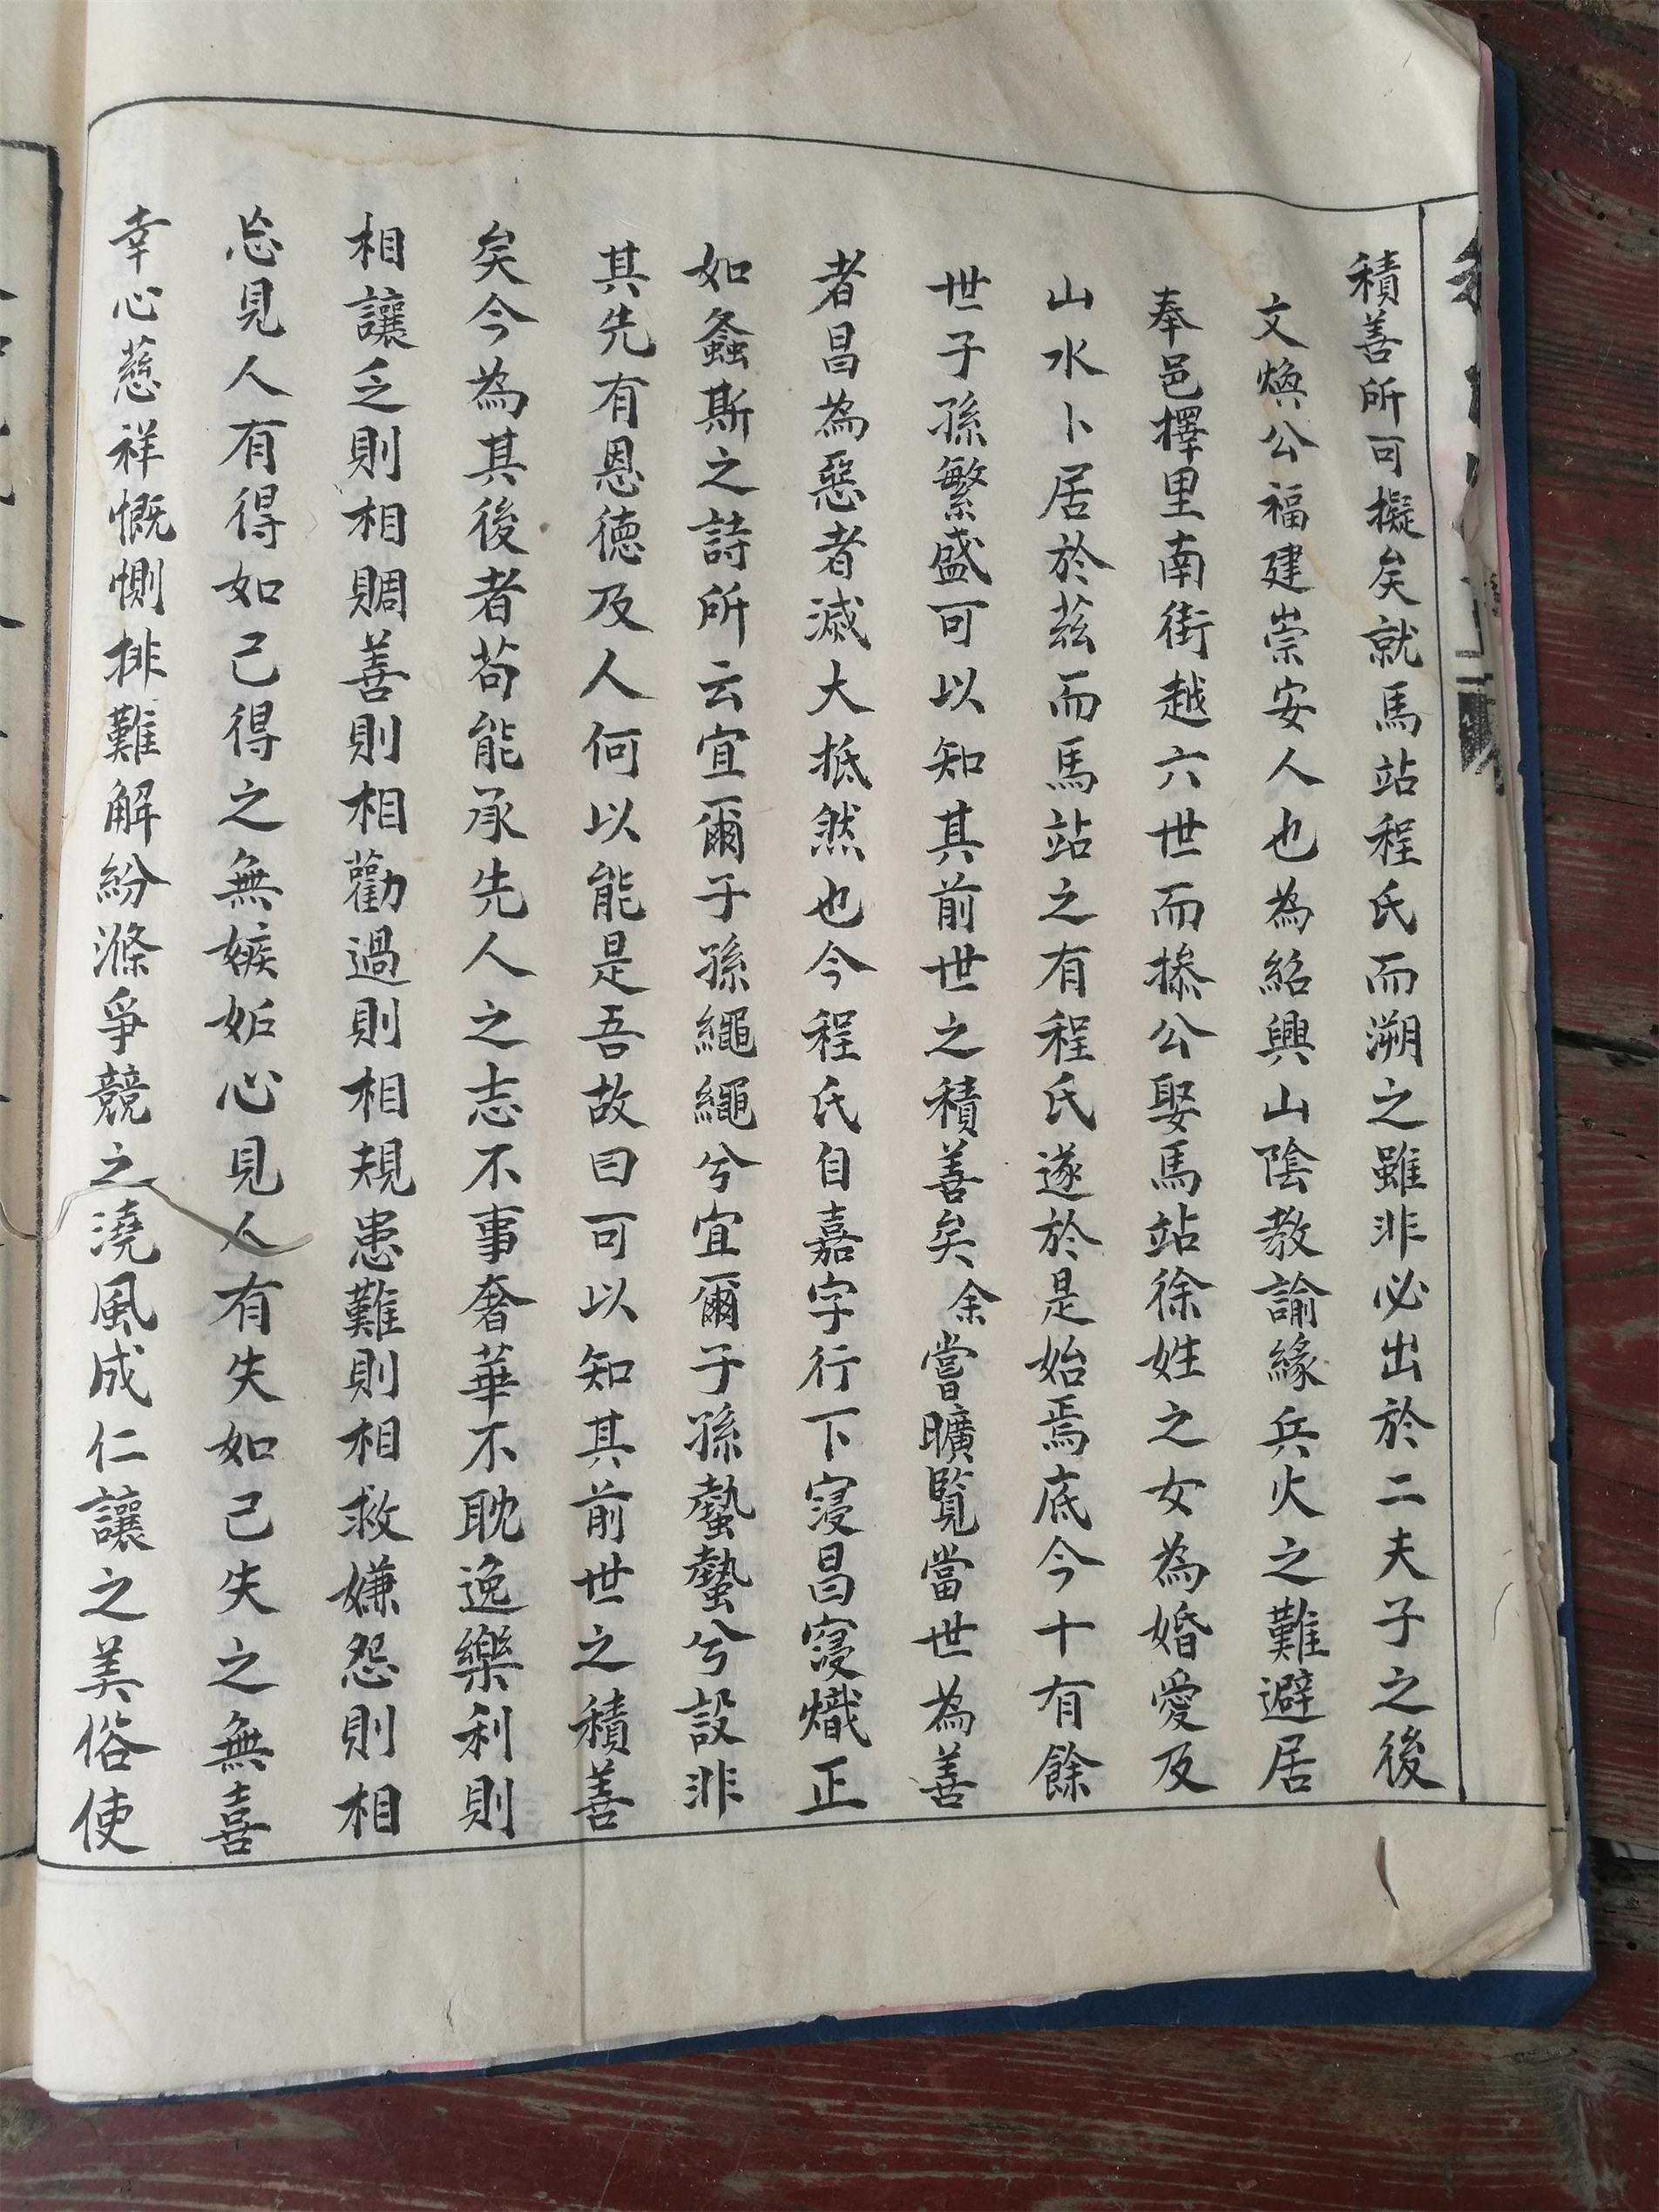 積善所可擬矣就馬站程氏而溯之雖非必出於二夫子之後
文煥公福建崇安人也為紹興山陰教諭緣兵火之難避居
奉邑擇里南街越六世而搽公娶馬站徐姓之女為婚愛及
山水卜居於茲而馬站之有程氏遂於是始焉底今十有餘
世子孫繁盛可以知其前世之積善矣余嘗曠覧當世為善
者昌為惡者滅大抵然也今程氏自嘉字行下寖昌寖熾正
如螽斯之詩所云宜爾子孫繩繩兮宜爾子孫蟄蟄兮設非
其先有恩德及人何以能是吾故曰可以知其前世之積善
矣今為其後者苟能承先人之志不事奢華不耽逸樂利則
相讓乏則相賙善則相勸過則相規患難則相救嫌怨則相
忘見人有得如己得之無嫉妬心見人有失如己失之無喜
幸心慈祥慨惻排難解紛滌爭競之澆風成仁讓之美俗使